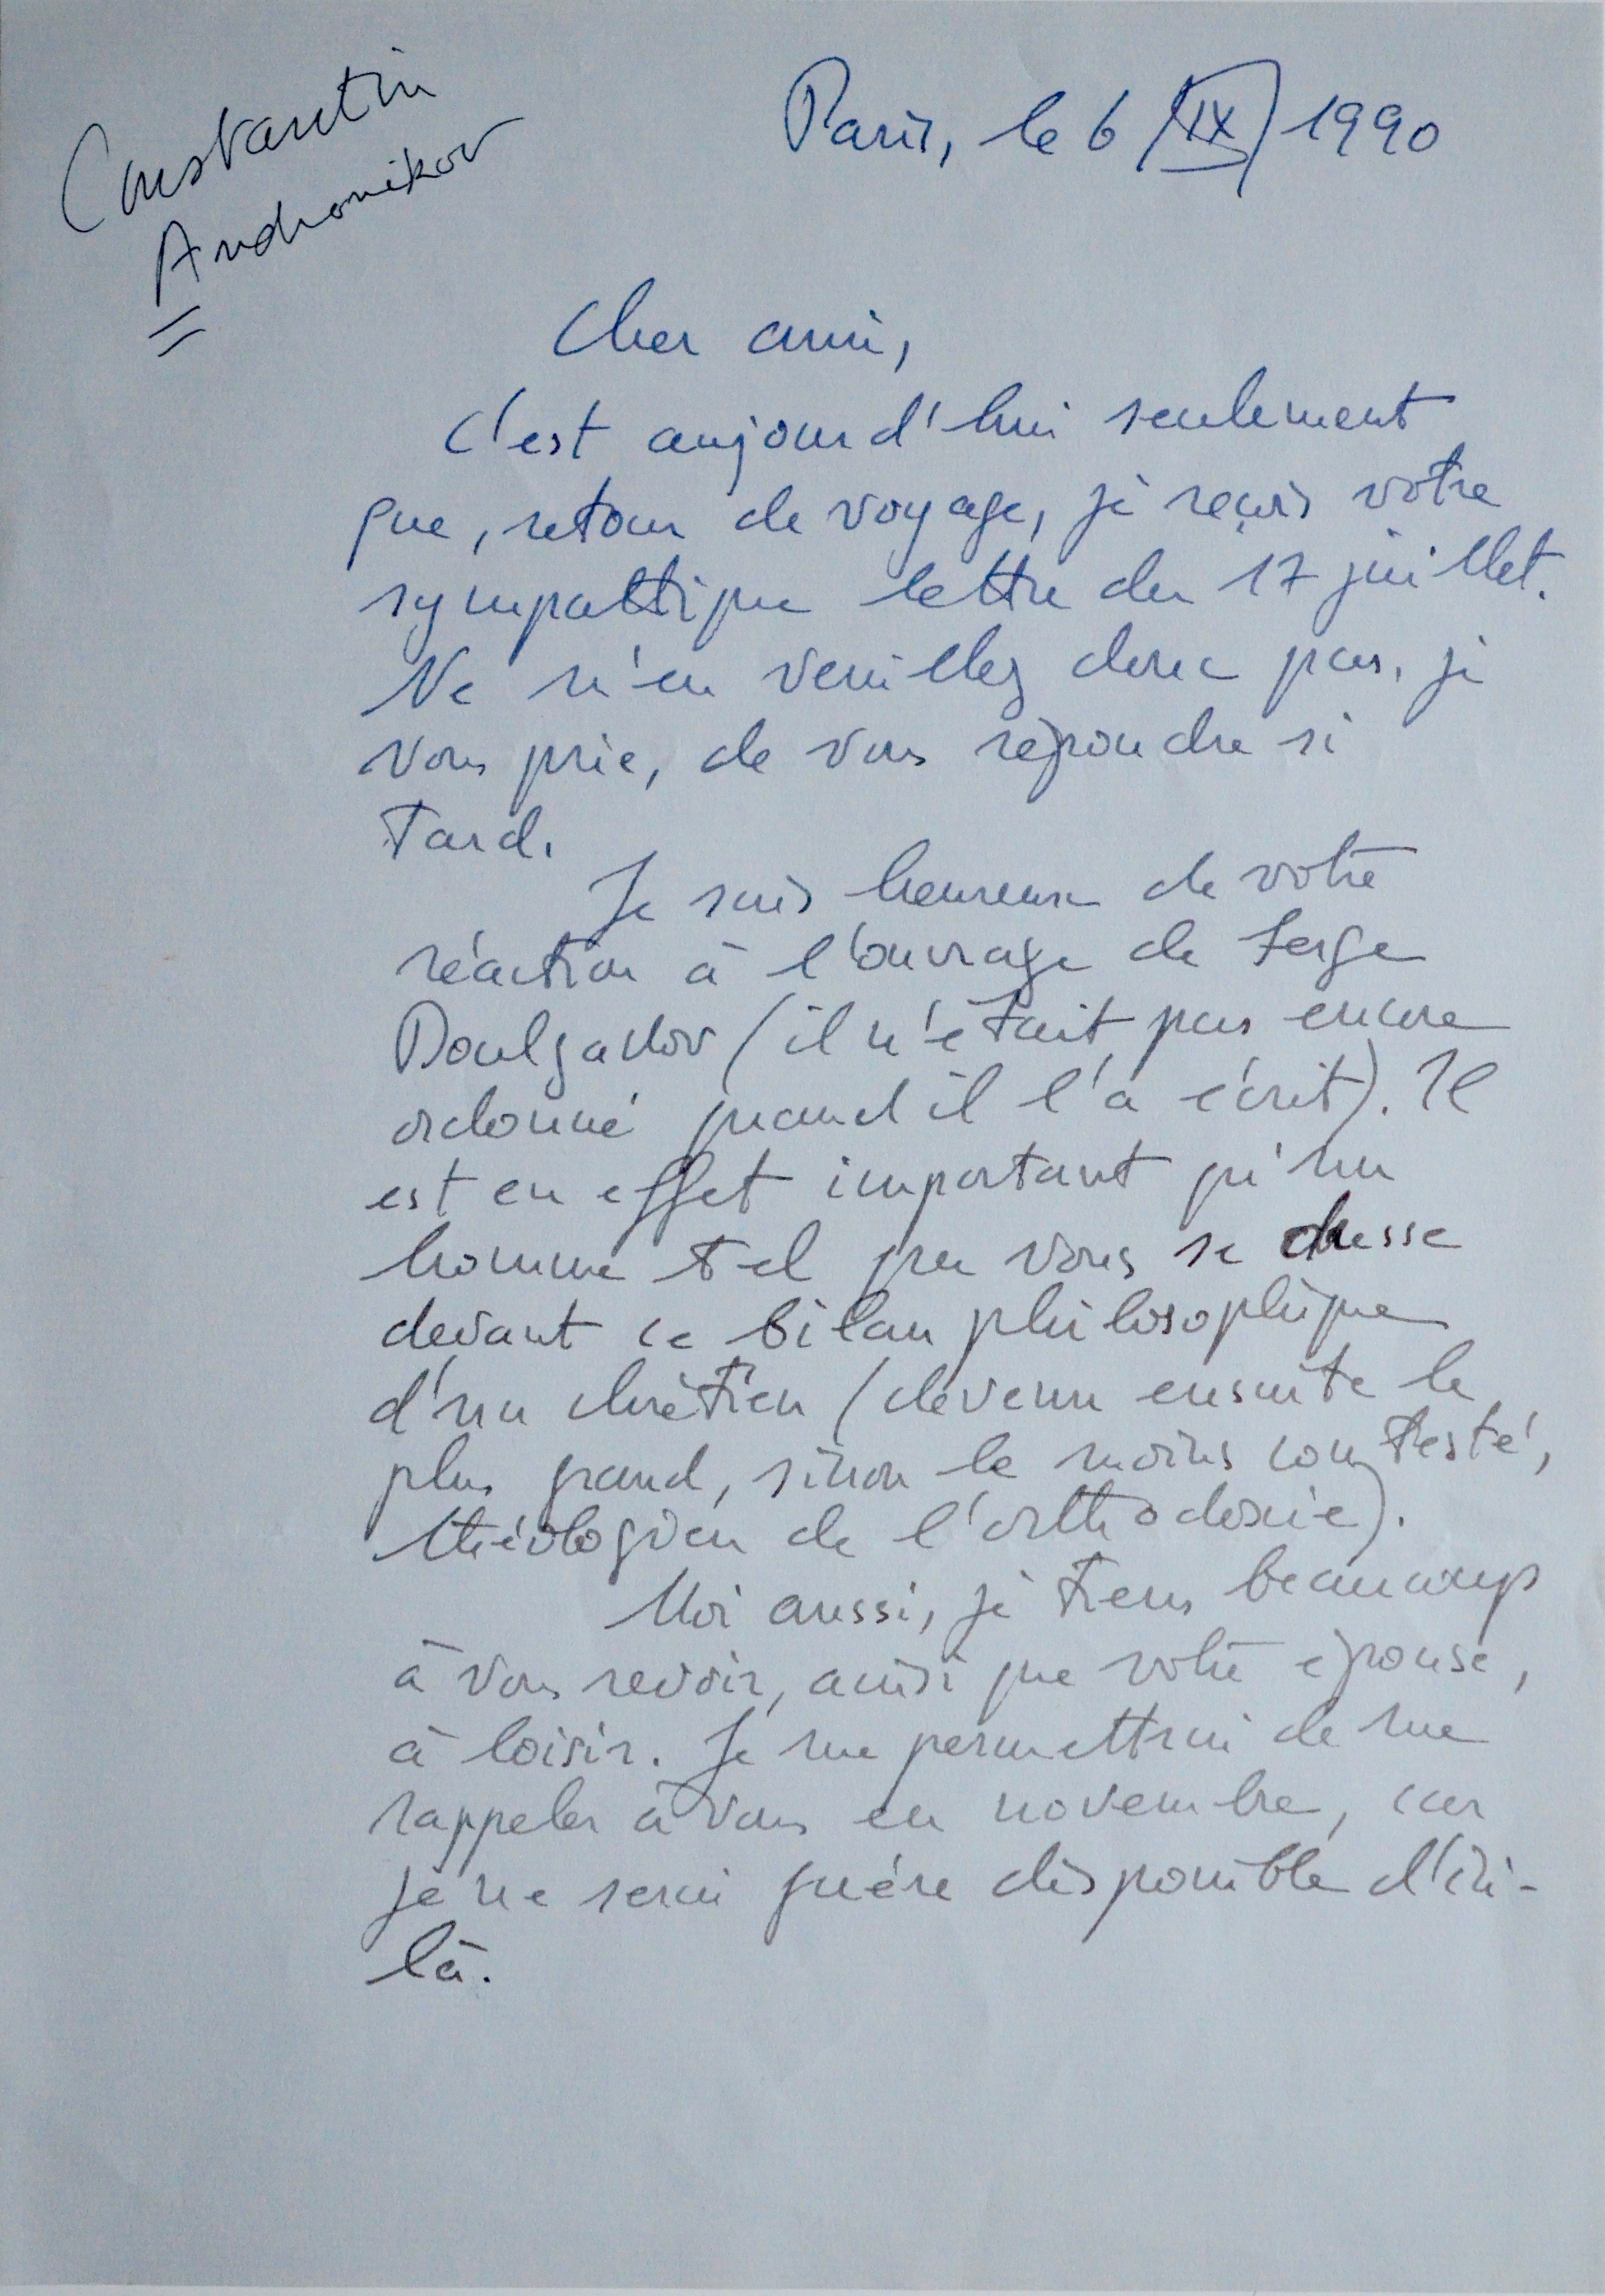 Constantin
Andronikov
Paris, le 6 / IX / 1990
Cher ami,
C'est aujourd'hui seulement
que, retour de voyage, je reçois votre
sympathique lettre du 17 juillet.
Ne m'en veuillez donc pas, je
vous prie, de vous répondre si
tard.
Je suis heureux de votre
réaction à l'ouvrage de Serge
Boulgakov (il n'était pas encore
ordonné quand il l'a écrit). Il
est en effet important qu'un
homme tel que vous se dresse
devant ce bilan philosophique
d'un chrétien (devenu ensuite le
plus grand, sinon le moins contesté,
théologien de l'orthodoxie).
Moi aussi, je tiens beaucoup
à vous revoir, ainsi que votre épouse,
à loisir. Je me permettrai de me
rappeler à vous en novembre, car
je ne serai guère disponible d'ici-
là.